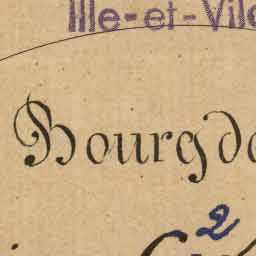 Ille-et-Vil
Bourg d
2